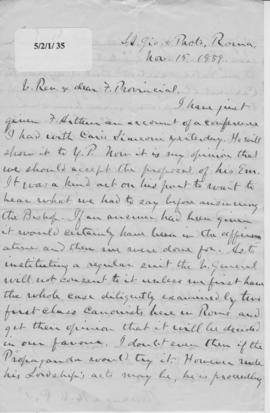 5/2/1/35
SS. Gio. e Paolo, Roma,
Nov. 15. 1889.
V. Rev. & dear F. Provincial,
I have just
given F. Arthur an account of a conference
I had with Card. Simeoni yesterday. He will
show it to Y.P. Now it is my opinion that
we should accept the proposal of his Em.
It was a kind act on his part to want to
hear what we had to say before answering
the Bishop. If an answer had been given
it would certainly have been in the affirm
ative and then we were done for. As to
instituting a regular suit the V. General
will not consent to it unless we first have
the whole case diligently examined by two
first class Canonists here in Rome and
get their opinion that it will be decided
in our favour. I doubt even then if the
Propaganda would try it. However rude
his Lordship's acts may be, he is proceeding